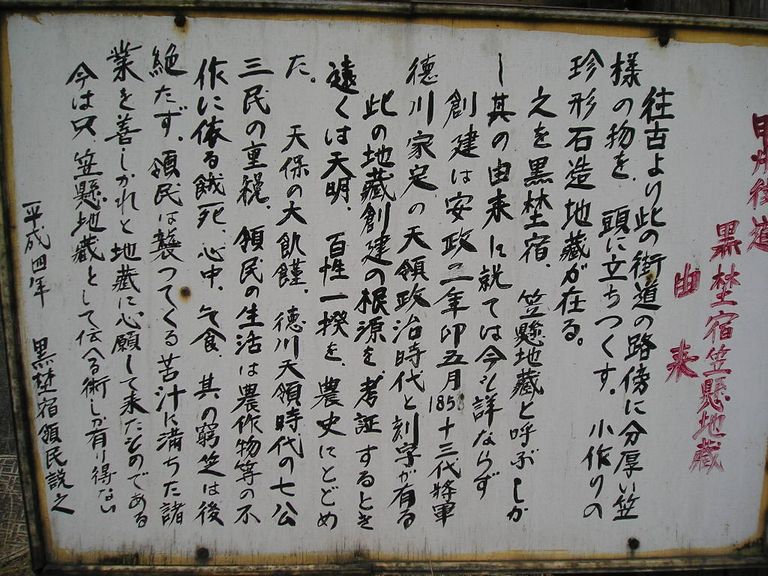 甲州街道
黒埜宿笠懸地蔵
由来
往古より此の街道の路傍に分厚い笠
様の物を、頭に立ちつくす。小作りの
珍形石造地蔵が在る。
之を黒埜宿、笠懸地蔵と呼ぶしか
し其の由来に就ては今も詳ならず
創建は安政二年卯五月1855十三代將軍
徳川家定の天領政治時代と刻字が有る
此の地蔵創建の根源を、考証するとき
遠くは天明、百性一揆を、農史にとどめ
た。天保の大飢饉、徳川天領時代の七公
三民の重税、領民の生活は農作物等の不
作に依る餓死、心中、乞食、其の窮笠は後
絶たず、領民は襲つてくる苦汁に満ちた諸
業を善しかれと地蔵に心願して来たものである
今は只、笠懸地蔵として伝へる術しか有り得ない
平成四年 黒埜宿領民説之